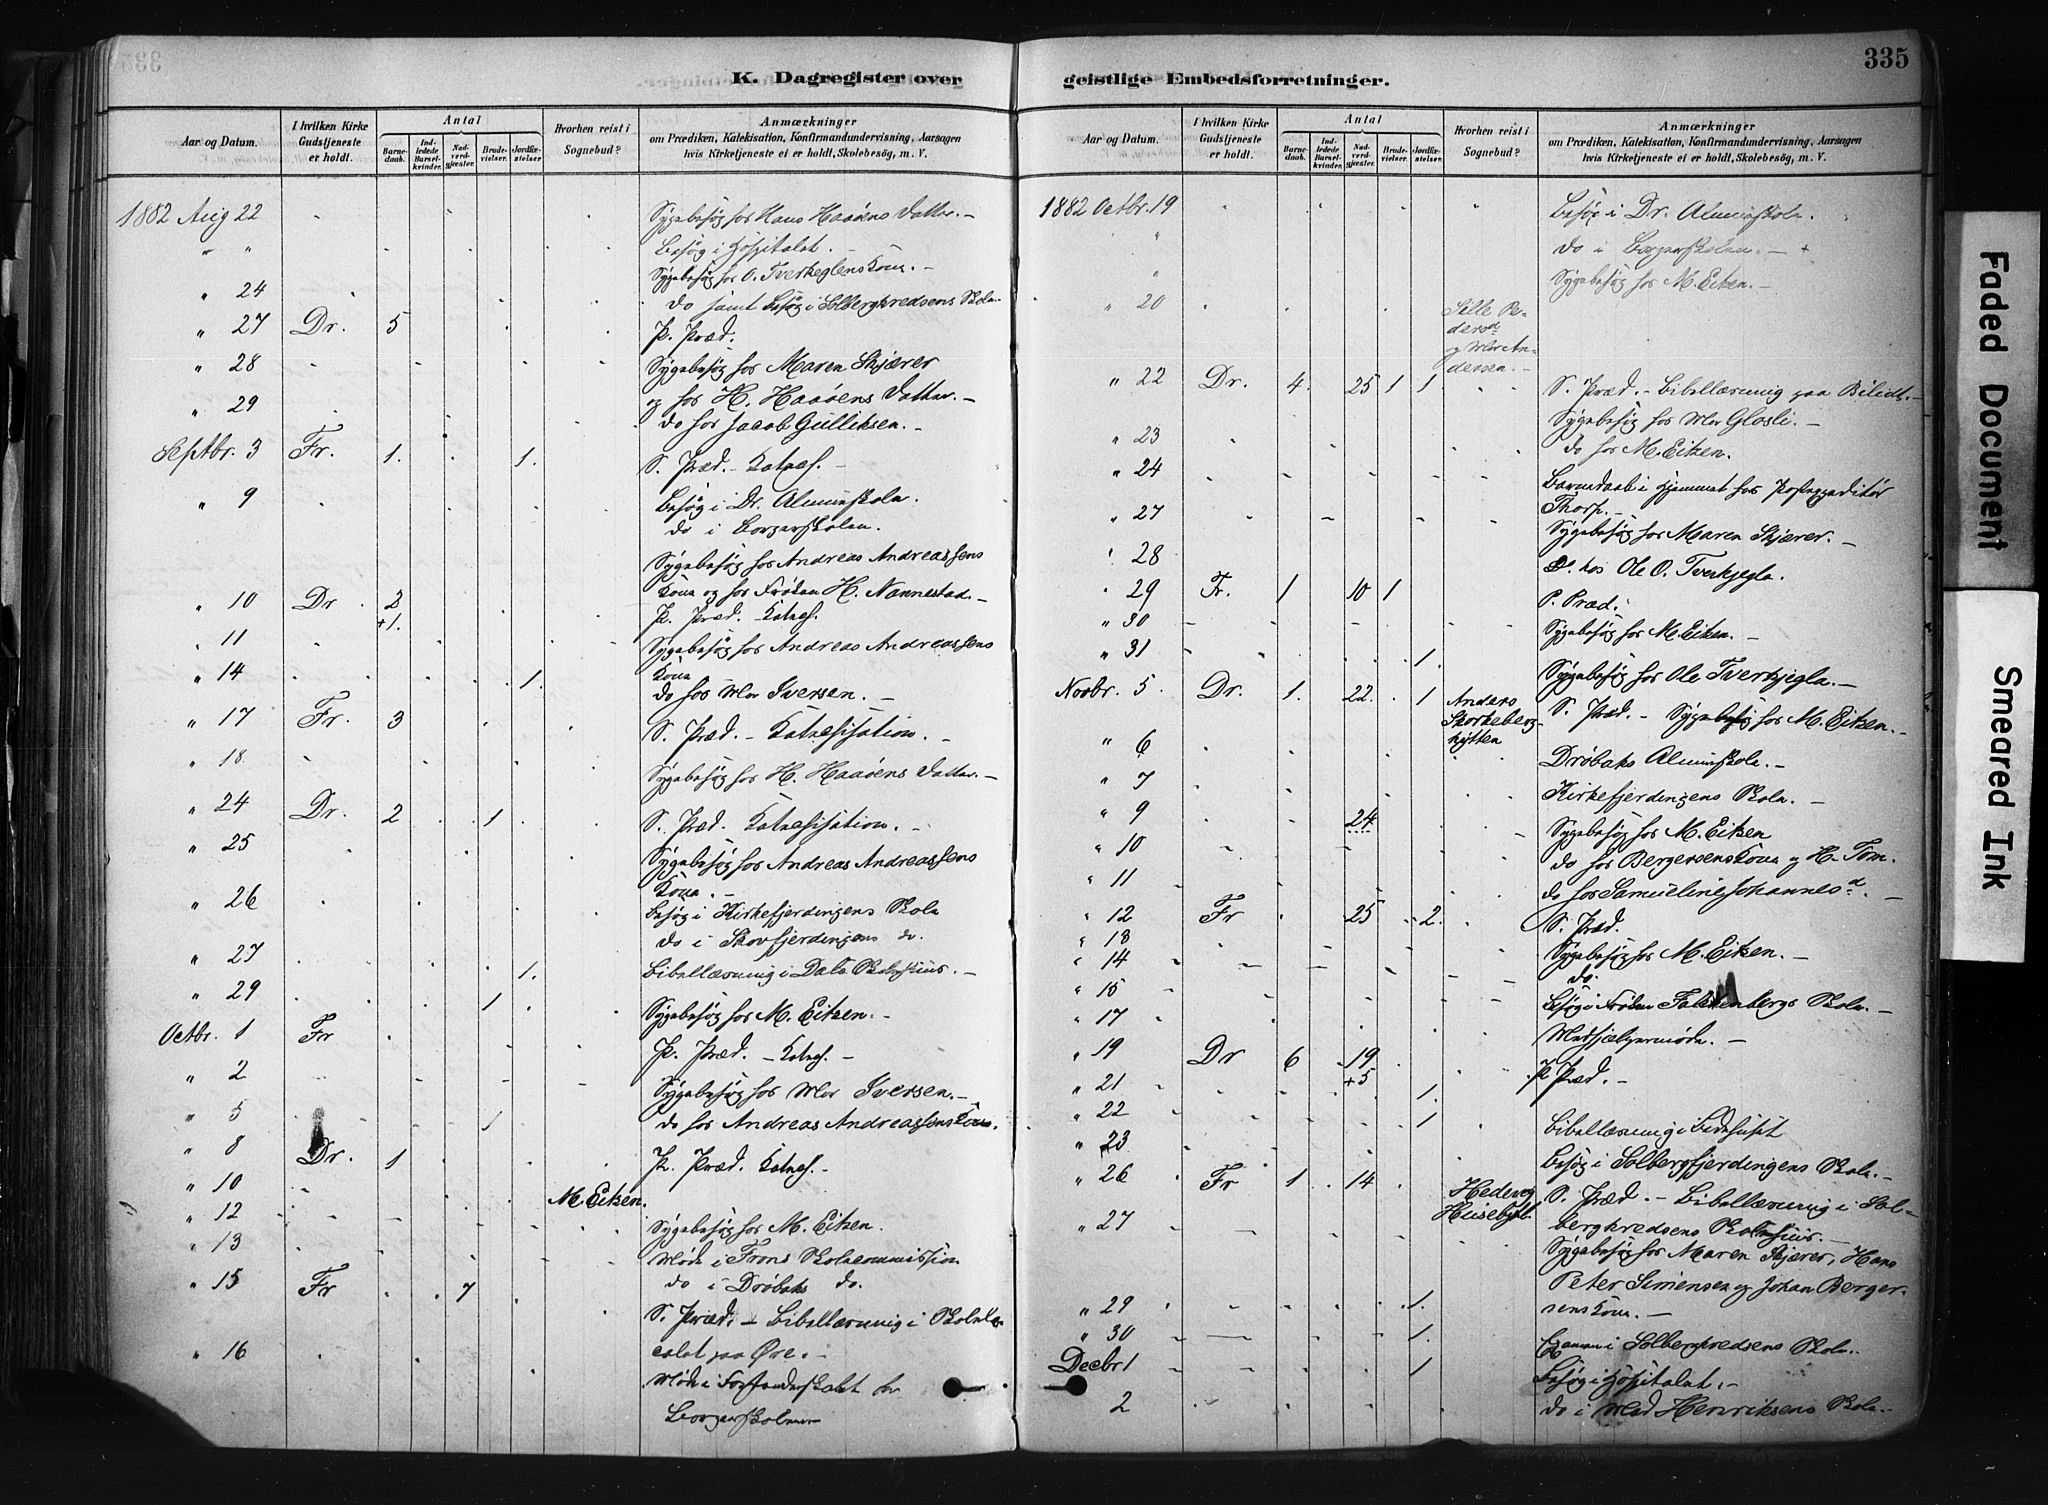 335
K. Dagregister over
Aar og Datum.
I hvilken Kirke Gudstjeneste er holdt.
Antal
Barnedaab.
Indledede Barselkvinder.
Nadverdgjæster.
Brudevielser.
Jordfæstelser.
Hvorhen reist i Sognebud?
Anmærkninger
om Prædiken, Katekisation, Konfirmandundervisning, Aarsagen
hvis Kirketjeneste ei er holdt, Skolebesög, m. V.
1882 Aug 22 Sygebesøg hos Hans Haaøens Datter. -
" " Besøg i Hospitalet. -
Sygebesøg hos O. Tverkeglens Kone. -
" 24 do samt Besøg i Solbergkredsens Skole.
" 27 Dr. 5 P. Præd.
" 28 Sygebesøg hos Maren Skjærer
og hos H. Haaøens Datter. -
" 29 do hos Jacob Gulliksen. -
Septbr. 3 Fr. 1. 1. S. Præd. - Kateches. -
" 9 Besøg i Dr. Almueskole.
do i Borgerskolen.
Sygebesøg hos Andreas Andreassens
Kone og hos Frøken H. Nannestad. -
" 10 Dr 2 +1. P. Præd. - Kateches.
" 11 Sygebesøg hos Andreas Andreassens
Kone
" 14 1. do hos Mor Iversen. -
" 17 Fr. 3 S. Præd. - Katechisation. -
" 18 Sygebesøg hos H. Haaøens Datter. -
" 24 Dr. 2 1 S. Præd. Katechisation. -
" 25 Sygebesøg hos Andreas Andreassens
Kone. -
" 26 Besøg i Kirkefjerdingens Skole
do i Skovfjerdingens do.
" 27 1. Bibellæsning i Dals Skolehuus. -
" 29 1 Sygebesøg hos M. Eitzen. -
Octbr. 1 Fr P. Præd. - Kateches. -
" 2 Sygebesøg hos Mor Iversen. -
" 5 1 do hos Andreas Andreassens Kone.
" 8 Dr. 1 P. Præd. Kateches. -
" 10 M. Eitzen.
" 12 Sygebesøg hos M. Eitzen.
" 13 Møde i Frons Skolecommission
do i Drøbaks do.
" 15 Fr 7 S. Præd. - Bibellæsning i Skolelo-
calet paa Øre. -
" 16 Møde i Forstanderskabet for
Borgerskolen
geistlige Embedsforretninger.
Aar og Datum.
I hvilken Kirke Gudstjeneste er holdt.
Antal
Barnedaab.
Indledede Barselkvinder.
Nadverdgjæster.
Brudevielser.
Jordfæstelser.
Hvorhen reist i Sognebud?
Anmærkninger
om Prædiken, Katekisation, Konfirmandundervisning, Aarsagen
hvis Kirketjeneste ei er holdt, Skolebesög, m. V.
1882 Octbr. 19 Besøg i Dr. Almueskole.
" do i Borgerskolen. -
" Sygebesøg hos M. Eitzen. -
" 20 Sille Pedersd og Mor Andersen. -
" 22 Dr. 4. 25 1 1. S. Præd. - Bibellæsning paa Bilidt. -
Sygebesøg hos Mor Glosli. -
" 23 do hos M. Eitzen.
" 24 Barnedaab i Hjemmet hos Postexpeditør
Thorp. -
" 27 Sygebesøg hos Maren Skjærer. -
" 28 Do. hos Ole O. Tverkjegla.
" 29 Fr. 1 10 1 P. Præd.
" 30 Sygebesøg hos M. Eitzen. -
" 31 1. Sygebesøg hos Ole Tverkjegla. -
Novbr. 5 Dr. 1. 22. 1 Anders Skorkeberghytten S. Præd. - Sygebesøg hos M. Eitzen. -
" 6 Drøbaks Almueskole. -
" 7 Kirkefjerdingens Skole. -
" 9 24 Sygebesøg hos M. Eitzen
" 10 do hos Bergersens Kone og H. Tom.
" 11 do hos Samueline Johannesd. -
" 12 Fr 25 2. S. Præd.
" 13 Sygebesøg hos M. Eitzen. -
" 14 do
" 15 Besøg i Frøken Falkenbergs Skole. -
" 17 Medhjælpermøde. -
" 19 Dr 6 19 +5 P. Præd. -
" 21 1.
" 22 1 Bibellæsning i Bedehuset
" 23 Besøg i Solbergfjerdingens Skole. -
" 26 Fr 1 14 Hedevig Huseby. S. Præd. - Bibellæsning i Sol-
bergkredsens Skolehuus. -
" 27 Sygebesøg hos Maren Skjærer, Hans
Peter Simensen og Johan Berger-
sens Kone. -
" 29 1.
" 30 1. Examen i Solbergkredsens Skole.
Decbr 1 1 Besøg i Hospitalet. -
2 do i Mad Henriksens Skole. -
Faded Document
Smeared Ink